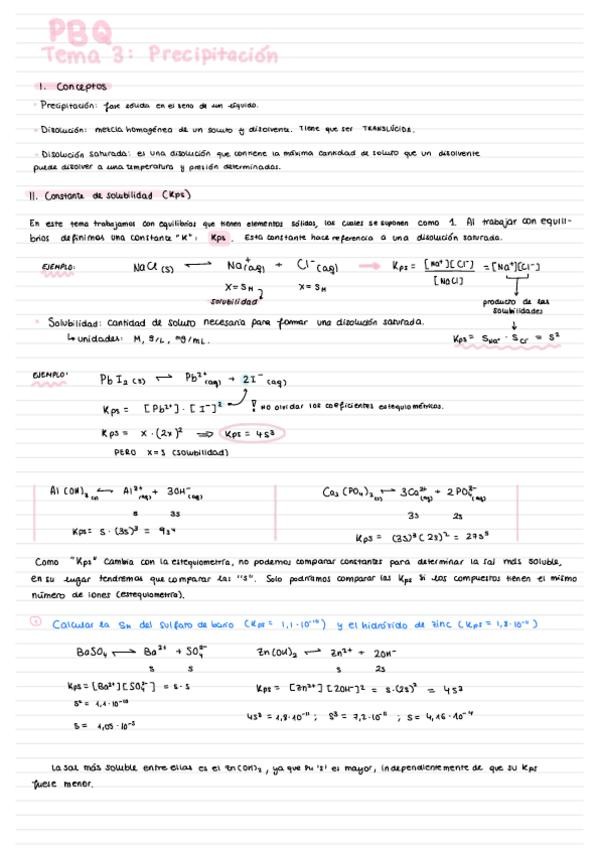 PBQ
Tema 3: Precipitación
I. Conceptos
· Precipitación: fase sólida en el seno de un líquido.
· Disolución: mezcla homogénea de un soluto y disolvente. Tiene que ser TRANSLÚCIDA.
· Disolución saturada: es una disolución que contiene la máxima cantidad de soluto que un disolvente
puede disolver a una temperatura y presión determinadas.
II. Constante de solubilidad (Kps)
En este tema trabajamos con equilibrios que tienen elementos sólidos, los cuales se suponen como 1. Al trabajar con equili-
brios definimos una constante "K": Kps. Esta constante hace referencia a una disolución saturada.
EJEMPLO: NaCl (s) ⇌ Na⁺(aq) + Cl⁻(aq) → Kps = [Na⁺][Cl⁻] / [NaCl] = [Na⁺][Cl⁻]
X = S_M X = S_M
solubilidad
producto de las
solubilidades
· Solubilidad: cantidad de soluto necesaria para formar una disolución saturada.
↳ unidades: M, g/L, mg/mL.
Kps = S_Na⁺ · S_Cl⁻ = S²
EJEMPLO: PbI₂ (s) ⇌ Pb²⁺(aq) + 2I⁻(aq)
Kps = [Pb²⁺] · [I⁻]² ! no olvidar los coeficientes estequiométricos.
Kps = x · (2x)² ⇒ Kps = 4s³
PERO x = s (solubilidad)
Al(OH)₃ (s) ⇌ Al³⁺(aq) + 3OH⁻(aq)
s 3s
Kps = s · (3s)³ = 9s⁴
Ca₃(PO₄)₂ (s) ⇌ 3Ca²⁺(aq) + 2PO₄³⁻(aq)
3s 2s
Kps = (3s)³(2s)² = 27s⁵
Como "Kps" cambia con la estequiometría, no podemos comparar constantes para determinar la sal más soluble,
en su lugar tendremos que comparar las "s". Solo podríamos comparar las Kps si los compuestos tienen el mismo
número de iones (estequiometría).
① Calcular la S_M del sulfato de bario (Kps = 1,1·10⁻¹⁰) y el hidróxido de zinc (Kps = 1,8·10⁻¹⁰)
BaSO₄ ⇌ Ba²⁺ + SO₄²⁻ Zn(OH)₂ ⇌ Zn²⁺ + 2OH⁻
s s s 2s
Kps = [Ba²⁺][SO₄²⁻] = s·s Kps = [Zn²⁺][2OH⁻]² = s·(2s)² = 4s³
s² = 1,1·10⁻¹⁰
4s³ = 1,8·10⁻¹⁰; s³ = 7,2·10⁻¹¹; s = 4,16·10⁻⁴
s = 1,05·10⁻⁵
La sal más soluble entre ellas es el Zn(OH)₂, ya que su 's' es mayor, independientemente de que su Kps
fuese menor.